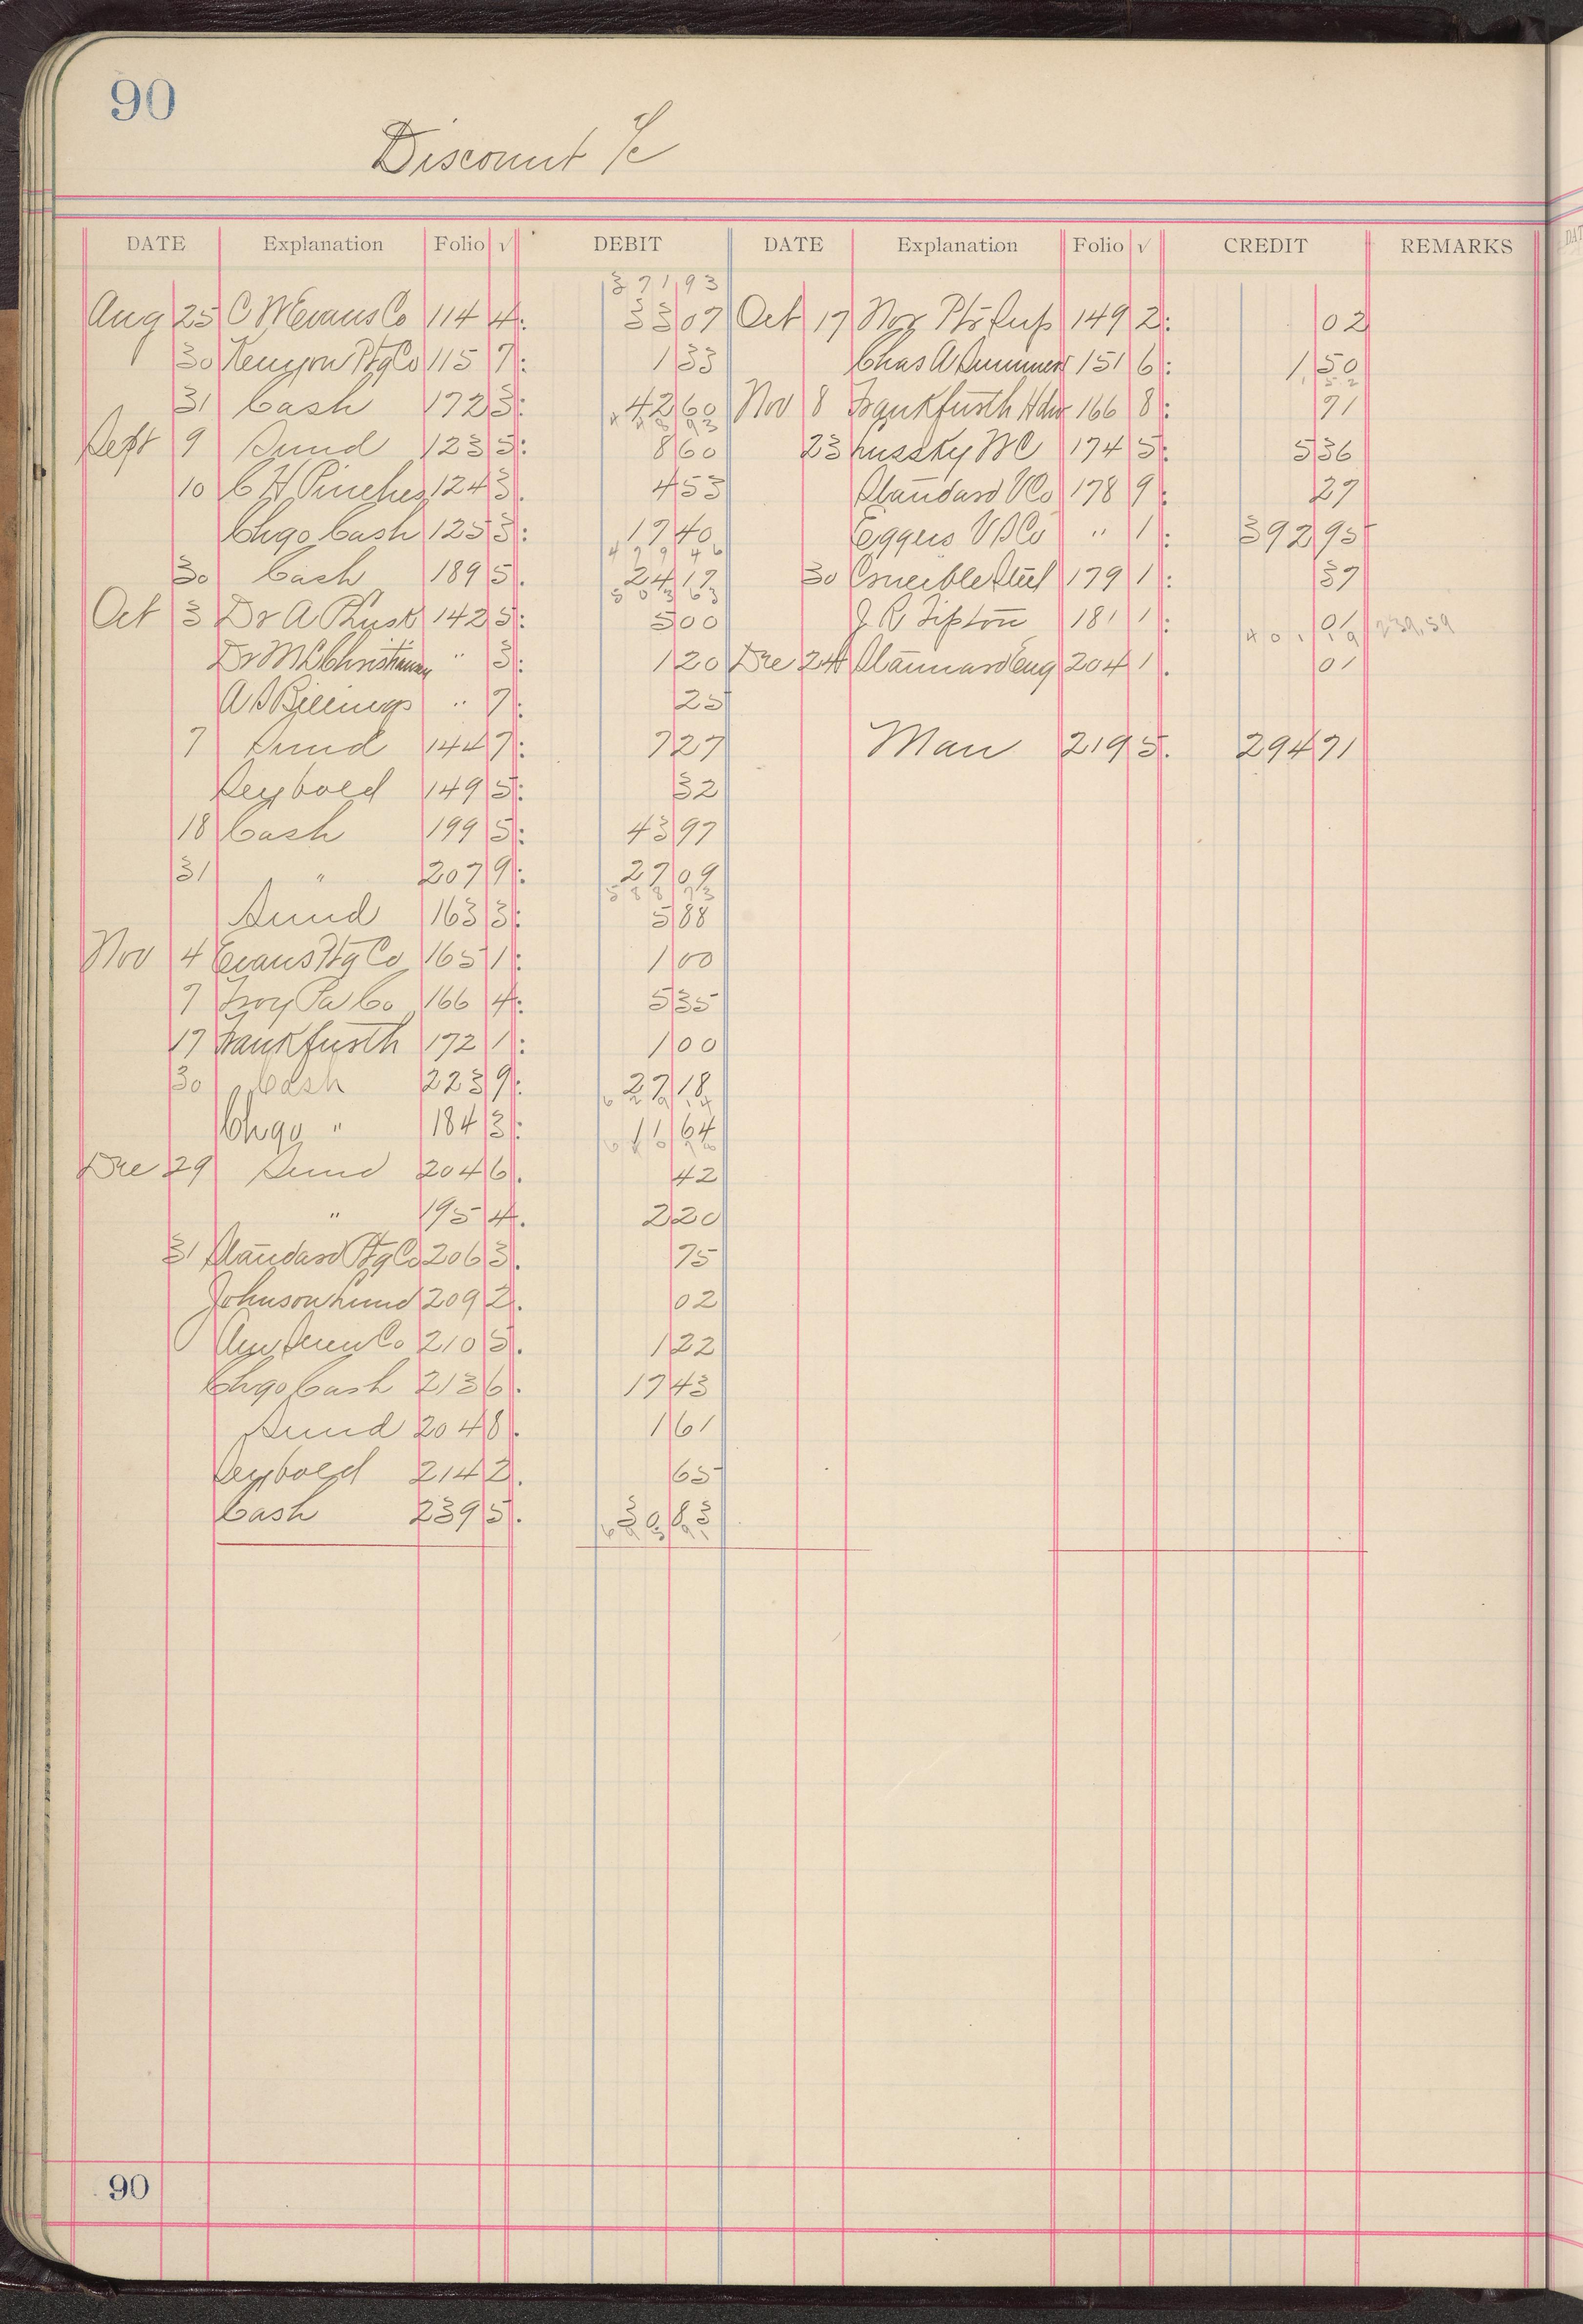 90
Discount a/c
DATE Explanation Folio √ DEBIT DATE Explanation Folio √ CREDIT REMARKS
371 93
Aug 25 C W Evans Co 114 4: 33 07 Oct 17 Nor 149 2: 02
30 Kenyon Ptg Co 115 7: 1 33 Chas A 151 6: 1 50
1 52
31 Cash 172 3: 42 60 Nov 8 Frankfurth Hdw 166 8: 71
448 93
Sept 9 Sund 123 5: 8 60 23 Hussky W C 174 5: 5 36
10 C H Pinches 124 3. 4 53 Standard V Co 178 9: 27
Chgo Cash 125 3: 17 40 Eggers V & Co " 1: 392 95
479 46
30 Cash 189 5. 24 17 30 Crucible Steel 179 1: 37
503 63
Oct 3 Dr A Rusk 142 5: 5 00 J R Tipton 181 1: 01
401 19 239.59
Dr M Christianson " 3: 1 20 Dec 24 Eng 204 1. 01
A S Billings " 7: 25
7 Sund 144 7: 7 27 Man 219 5. 294 71
Seybold 149 5: 32
18 Cash 199 5: 43 97
31 " 207 9: 27 09
588 73
Sund 163 3: 5 88
Nov 4 Evans Ptg Co 165 1: 1 00
7 Troy Pa Co 166 4: 5 35
17 Frankfurth 172 1: 1 00
30 Cash 223 9: 27 18
Chgo " 184 3: 11 64
Dec 29 Sund 204 6. 42
" 195 4. 2 20
31 Standard Ptg Co 206 3. 75
Johnson Sund 209 2. 02
Am Co 210 5. 1 22
Chgo Cash 213 6. 17 43
Sund 204 8. 1 61
Seybold 214 2. 65
Cash 239 5. 30 83
695 91
90